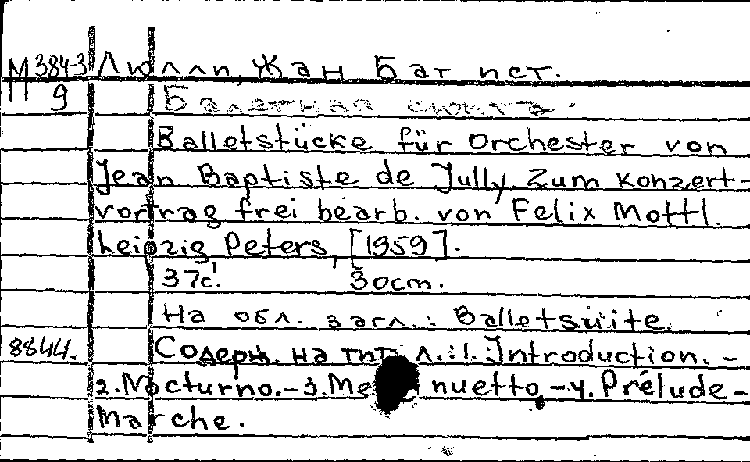 М 3843 Люлли, Жан Батист.
9 Балетная сюита.
Balletstücke für Orchester von
Jean Baptiste de Jully. Zum Konzert-
vortrag frei bearb. von Felix Mottl.
Leipzig Peters, [1959].
37с. 30cm.
На обл. загл.: Balletsuite.
8844. Содерж. на тит. л.: 1. Introduction. -
2. Nocturno. - 3. Menuetto. - 4. Prélude -
Marche.